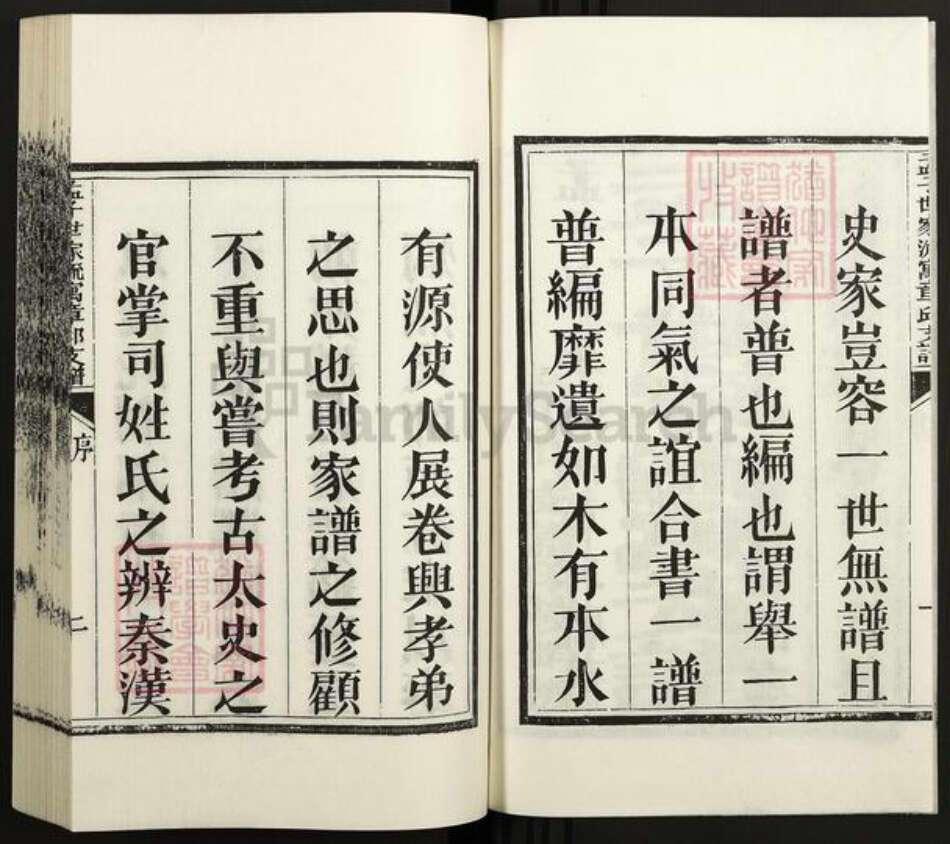 史家豈容一世無譜且
譜者普也編也謂舉一
本同氣之誼合書一譜
普編靡遺如木有本水
有源使人展卷興孝弟
之思也則家譜之修顧
不重與嘗考古太史之
官掌司姓氏之辨秦漢
孟子世家流寓章邱支譜
序
一
二
FamilySearch